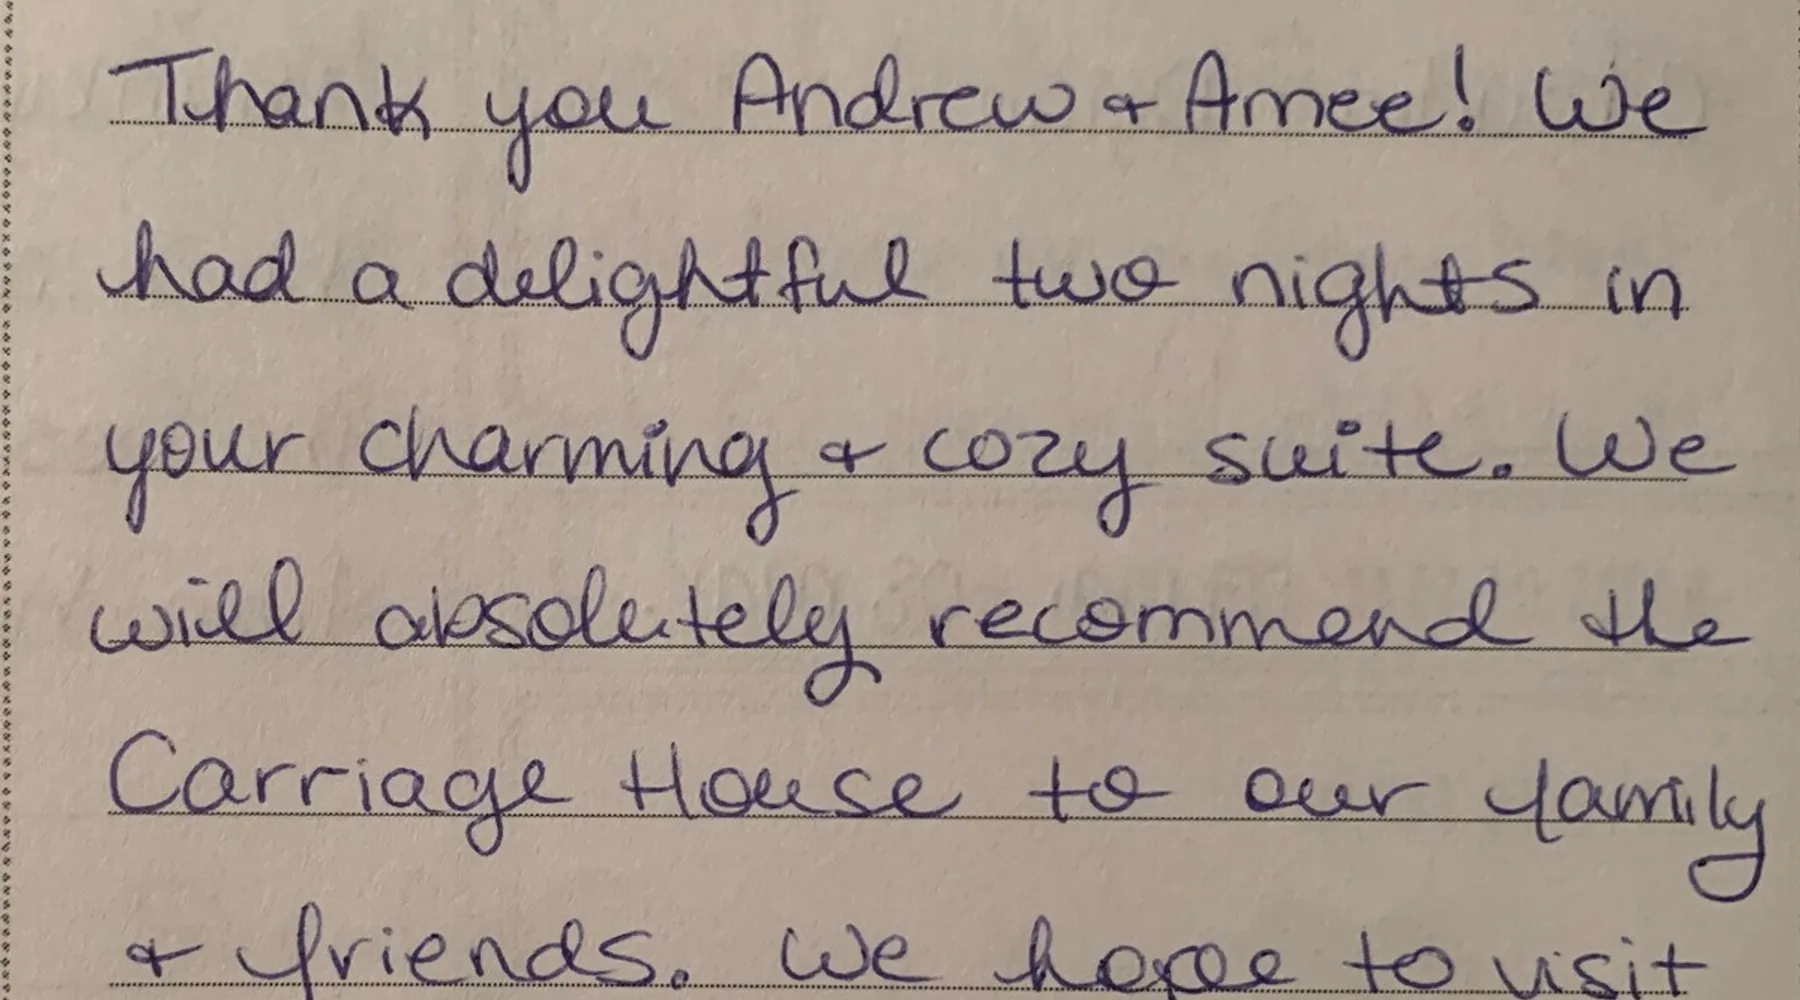 Thank you Andrew & Amee! We
had a delightful two nights in
your charming & cozy suite. We
will absolutely recommend the
Carriage House to our family
& friends. We hope to visit